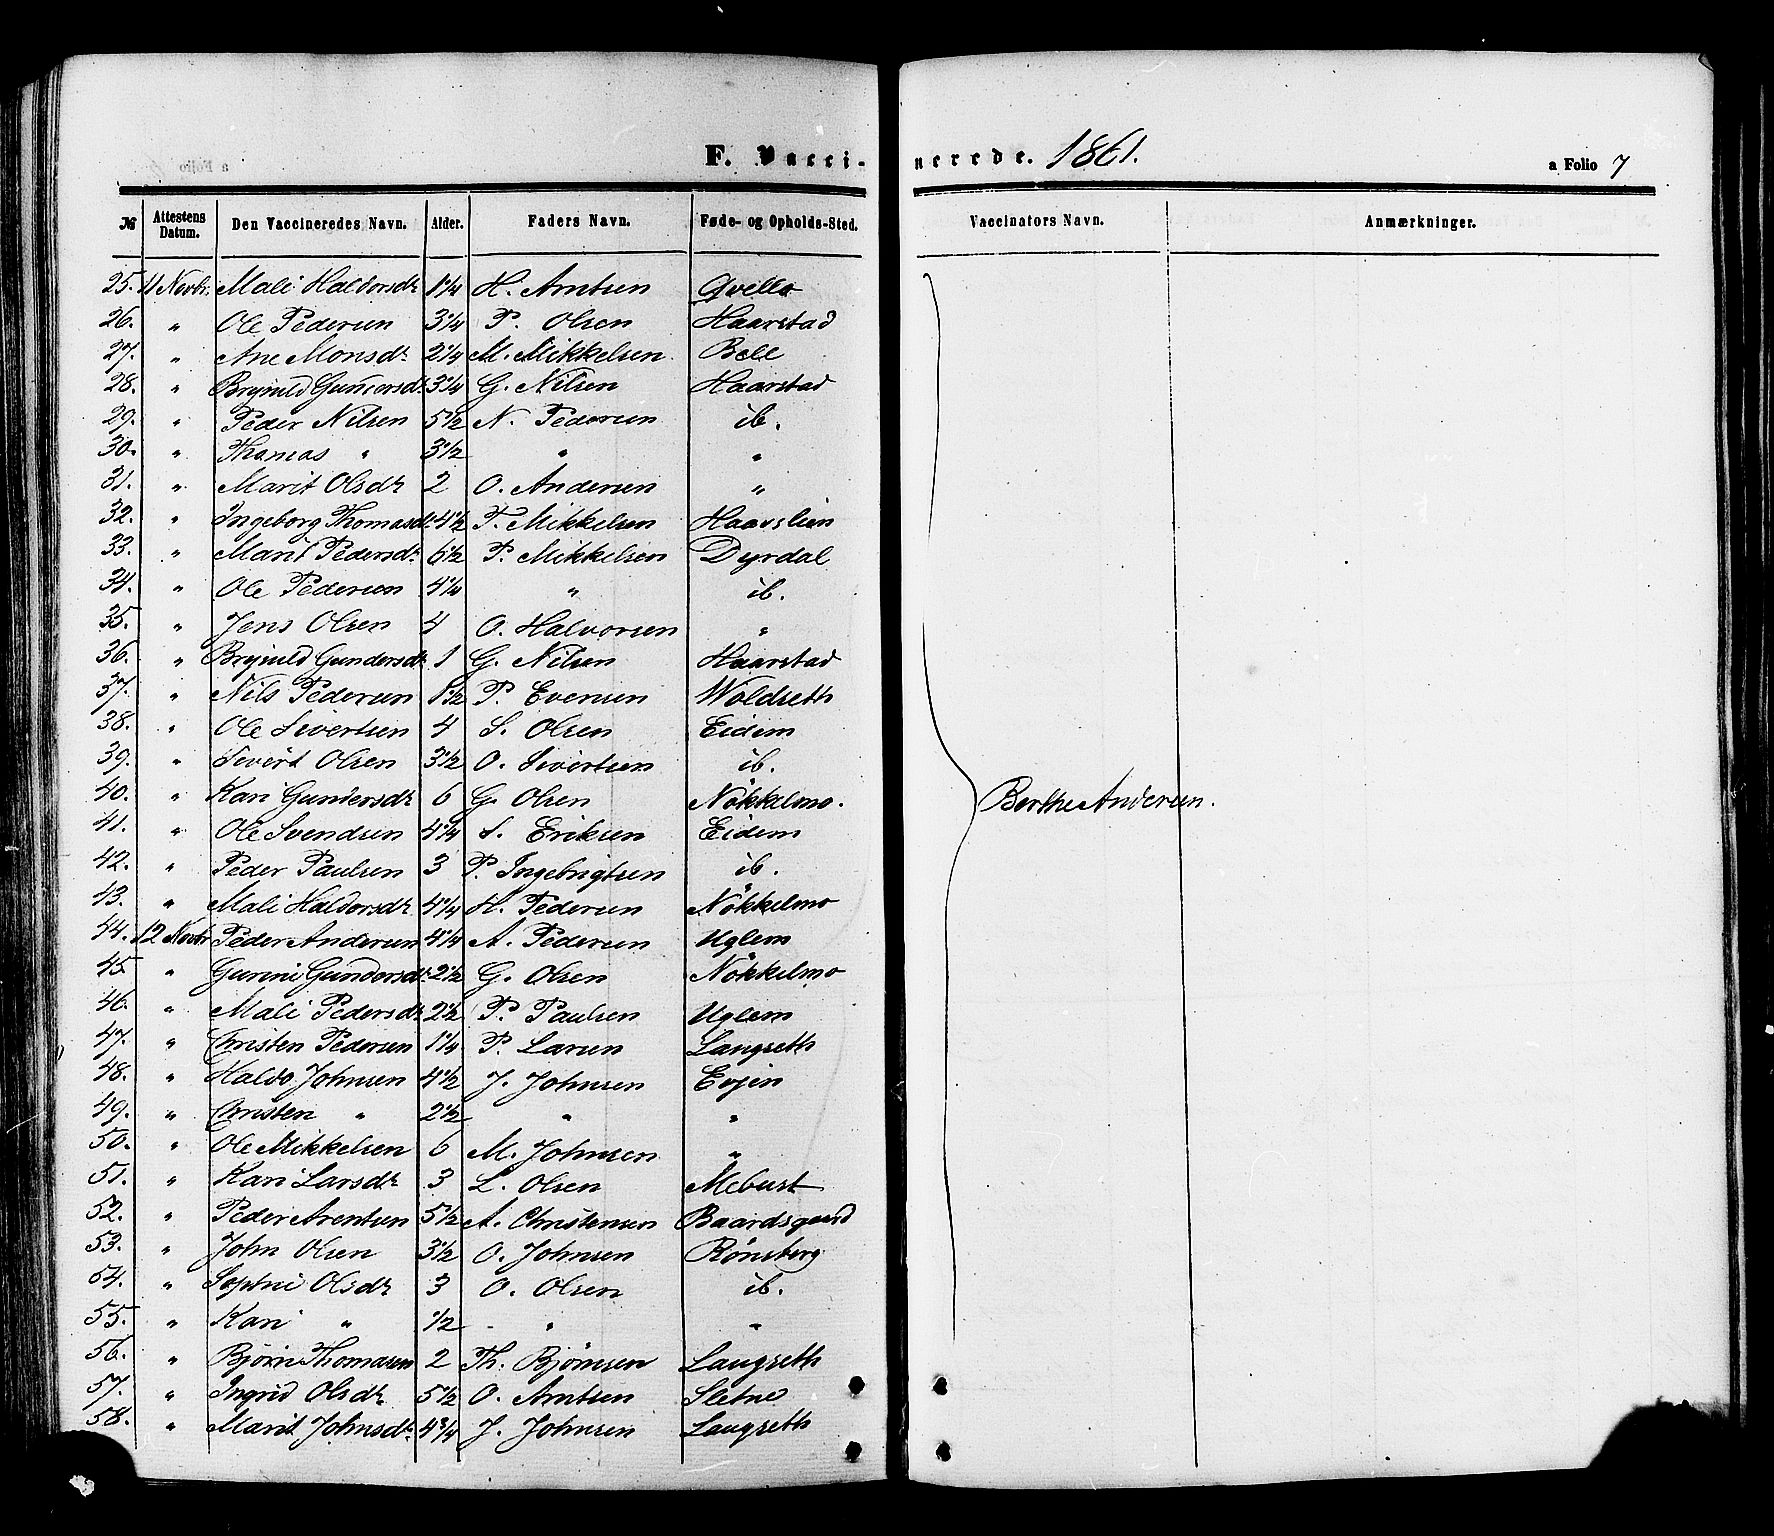 F. Vaccinerede. 1861. a Folio 7
№ Attestens Datum. Den Vaccineredes Navn. Alder. Faders Navn. Føde- og Opholds-Sted. Vaccinators Navn. Anmærkninger.
25. 11 Novbr. Mali Haldorsdr 1 1/4 H. Arntsen Qvello
26. " Ole Pedersen 3 1/4 P. Olsen Haarstad
27. " Ane Monsdr 2 1/4 M. Mikkelsen Bell
28. " Brynild Gundersdr 3 1/4 G. Nilsen Haarstad
29. " Peder Nilsen 5 1/2 N. Pedersen ib.
30. " Thomas " 3 1/2 " "
31. " Marit Olsdr 2 O. Andersen "
32. " Ingeborg Thomasdr 4 1/2 T. Mikkelsen Haavslien
33. " Marit Pedersdr 6 1/2 P. Mikkelsen Dyrdal
34. " Ole Pedersen 4 1/4 " ib.
35. " Jens Olsen 4 O. Halvorsen "
36. " Brynild Gundersdr 1 G. Nilsen Haarstad
37. " Nils Pedersen 1 1/2 P. Evensen Woldseth
38. " Ole Sivertsen 4 S. Olsen Eidem
39. " Sivert Olsen 3 1/2 O. Sivertsen ib.
40. " Kari Gundersdr 6 G. Olsen Nökkelmo. Berthe Andersen.
41. " Ole Svendsen 4 1/4 S. Eriksen Eidem
42. " Peder Paulsen 3 P. Ingebrigtsen ib.
43. " Mali Haldorsdr 4 1/4 H. Pedersen Nökkelmo
44. 12 Novbr Peder Andersen 4 1/4 A. Pedersen Uglem
45. " Gurini Gundersdr 2 1/2 G. Olsen Nökkelmo
46. " Mali Pedersdr 2 1/2 P. Paulsen Uglem
47. " Christen Pedersen 1 1/4 P. Larsen Langseth
48. " Haldo Johnsen 4 1/2 J. Johnsen Evjen
49. " Christen " 2 1/2 " "
50. " Ole Mikkelsen 6 M. Johnsen "
51. " Kari Larsdr 3 L. Olsen Mebust
52. " Peder Arentsen 5 1/2 A. Christensen Baardsgaard
53. " John Olsen 3 1/2 O. Johnsen Rønsberg
54. " Sophie Olsdr 3 O. Olsen ib.
55. " Kari " 1/2 " "
56. " Bjørn Thomasen 2 Th. Bjørnsen Langseth
57. " Ingrid Olsdr 5 1/2 O. Arntsen Sletne
58. " Marit Johnsdr 4 3/4 J. Johnsen Langseth